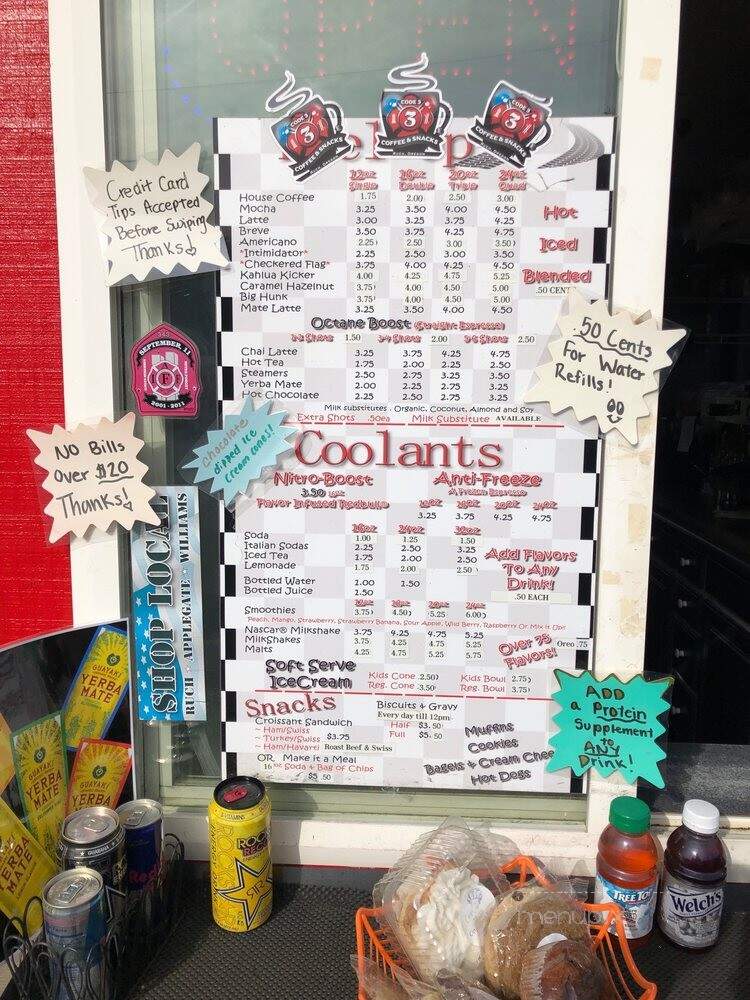 OPEN
CODE 3
3
COFFEE & SNACKS
RUCH, OREGON
CODE 3
3
COFFEE & SNACKS
RUCH, OREGON
CODE 3
3
COFFEE & SNACKS
Credit Card
Tips Accepted
Before Swiping
Thanks!
12oz 16oz 20oz 24oz
Single Double Triple Quad
House Coffee 1.75 2.00 2.50 3.00
Mocha 3.25 3.50 4.00 4.50
Latte 3.00 3.25 3.75 4.25
Breve 3.50 3.75 4.25 4.75
Americano 2.25 2.50 3.00 3.50
*Intimidator* 2.25 2.50 3.00 3.50
*Checkered Flag* 3.75 4.00 4.25 4.50
Kahlua Kicker 4.00 4.25 4.75 5.25
Caramel Hazelnut 3.75 4.00 4.50 5.00
Big Hunk 3.75 4.00 4.50 5.00
Mate Latte 3.25 3.50 4.00 4.50
Hot
Iced
Blended
.50 CENT
Octane Boost (Straight Espresso)
1-2 Shots 1.50 3-4 Shots 2.00 5-6 Shots 2.50
Chai Latte 3.25 3.75 4.25 4.75
Hot Tea 1.75 2.00 2.25 2.50
Steamers 2.50 2.75 3.25 3.50
Yerba Mate 2.00 2.25 2.75 3.25
Hot Chocolate 2.25 2.50 2.75 3.25
Milk substitutes . Organic, Coconut, Almond and Soy
Extra Shots .50ea Milk Substitute AVAILABLE
.50 Cents
For Water
Refills!
SEPTEMBER, 11
343
F
2001 - 2011
No Bills
Over $20
Thanks!
Chocolate
dipped Ice
Cream cones!
Coolants
Nitro-Boost
3.50
Flavor Infused Redbulls
Anti-Freeze
A Frozen Espresso
12oz 16oz 20oz 24oz
3.25 3.75 4.25 4.75
16oz 24oz 32oz
Soda 1.00 1.25 1.50
Italian Sodas 2.25 2.50 3.25
Iced Tea 1.75 2.00 2.50
Lemonade 1.75 2.00 2.50
Bottled Water 1.00 1.50
Bottled Juice 2.50
Add Flavors
To Any
Drink!
.50 EACH
12oz 16oz 20oz 24oz
Smoothies 3.75 4.50 5.25 6.00
Peach, Mango, Strawberry, Strawberry Banana, Sour Apple, Wild Berry, Raspberry Or Mix it Up!
Nascar® Milkshake 3.75 4.25 4.75 5.25
MilkShakes 3.75 4.25 4.75 5.25
Malts 4.25 4.75 5.25 5.75
Over 75
Flavors!
Oreo .75
Soft Serve
IceCream
Kids Cone .2.50
Reg. Cone .3.50
Kids Bowl 2.75
Reg. Bowl 3.75
Snacks
Croissant Sandwich
~ Ham/Swiss
~ Turkey/Swiss $3.75
~ Ham/Havarti Roast Beef & Swiss
OR Make it a Meal
16 oz Soda + Bag of Chips
$5 50
Biscuits + Gravy
Every day till 12pm
Half $3.50
Full $5.50
Muffins
Cookies
Bagels + Cream Chee
Hot Dogs
SHOP LOCAL
RUCH - APPLEGATE - WILLIAMS
ADD
a Protein
Supplement
to
ANY
Drink!
GUAYAKI
YERBA
MATE
GUAYAKI
YERBA
MATE
GUAYAKI
YERBA
YERBA
MATE
ROCKSTAR
TREE TOP
Welch's
menupix